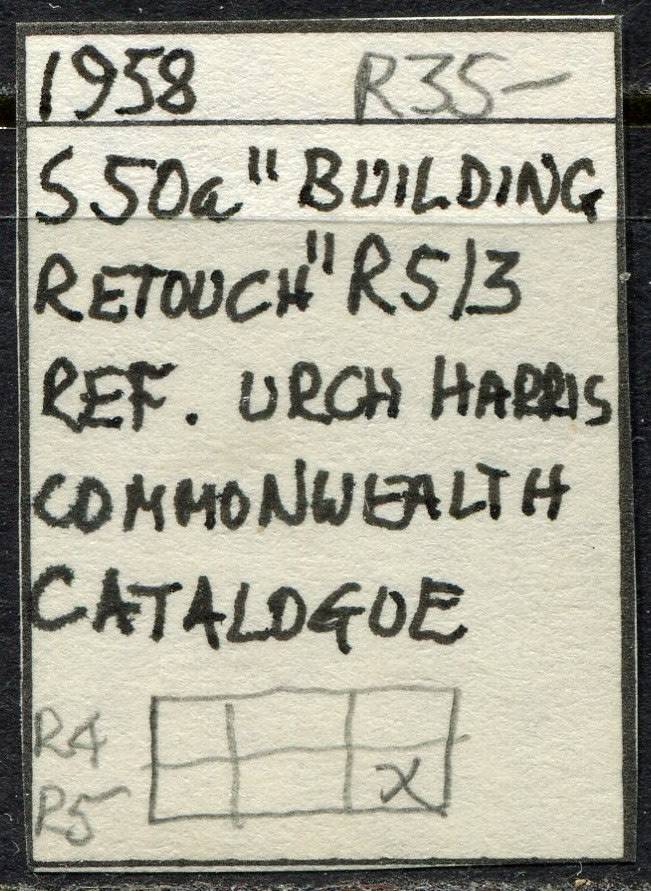 1958 R35-
S50a "BUILDING
RETOUCH" R5/3
REF. URCH HARRIS
COMMONWEALTH
CATALOGUE
R4
R5 x